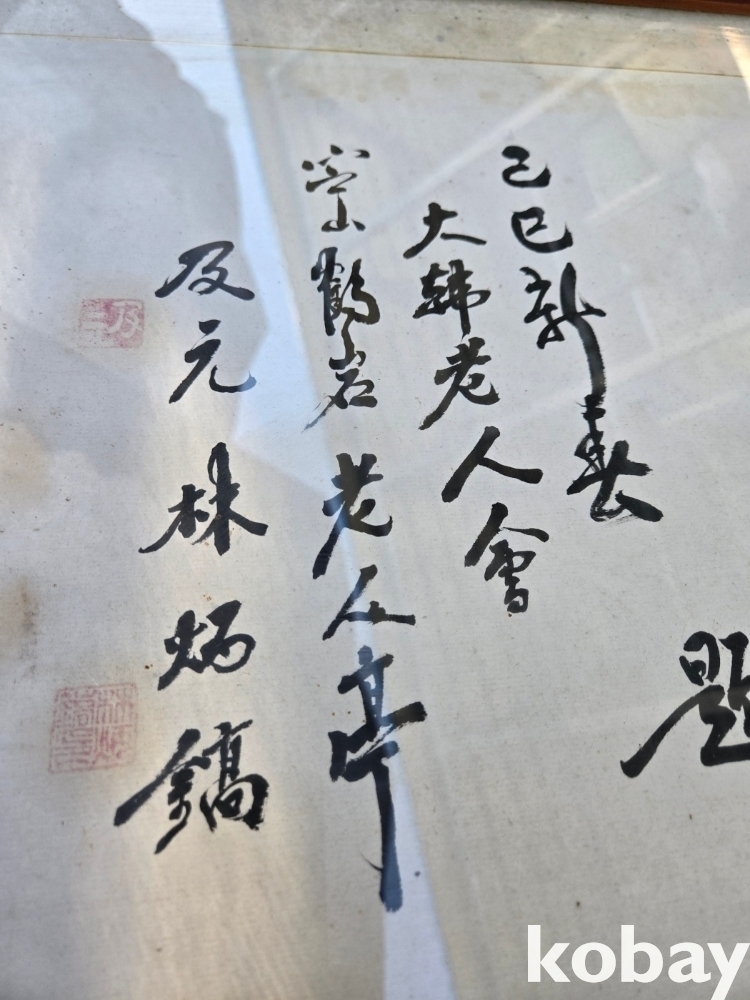 題
己巳新春
大韓老人會
崇山鶴岩老人亭
及元 林炳鎬
kobay